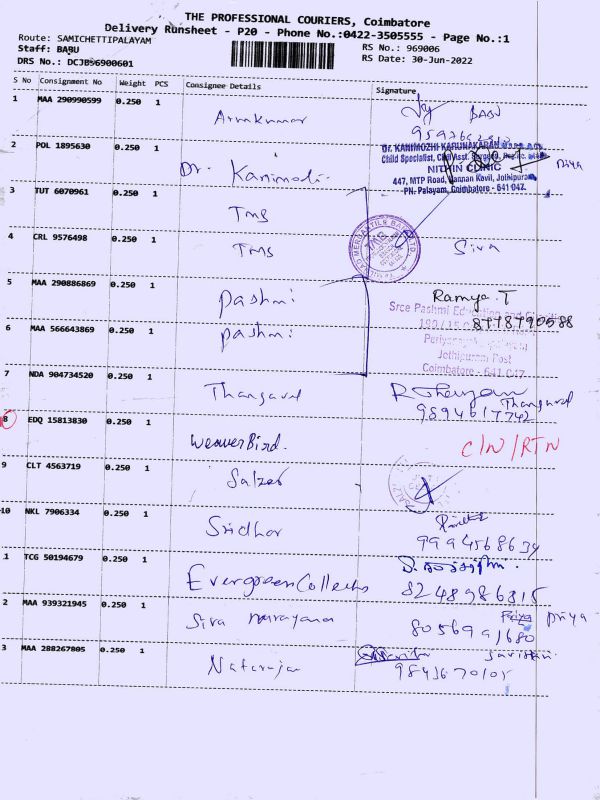 THE PROFESSIONAL COURIERS, Coimbatore
Delivery Runsheet - P20 - Phone No.:0422-3505555 - Page No.:1
Route: SAMICHETTIPALAYAM
Staff: BABU
RS No.: 969006
DRS No.: DCJB96900601
RS Date: 30-Jun-2022
S No Consignment No Weight PCS Consignee Details Signature
1 MAA 290990599 0.250 1 Arunkumar BABU
2 POL 1895630 0.250 1 Dr. Kanimoli
Dr. KANIMOZHI KARUNAKARAN
Child Specialist,
NITHIN CLINIC
447, MTP Road, Vannan Kovil, Jothipuram,
PN. Palayam, Coimbatore - 641 047.
3 TUT 6070961 0.250 1 TMS
4 CRL 9576498 0.250 1 TMS Siva
5 MAA 290886869 0.250 1 pashmi Ramya.T
Sree Pashmi
8778790588
6 MAA 566643869 0.250 1 pashmi
Jothipuram Post
Coimbatore - 641 047
7 NDA 904734520 0.250 1 Thangavel Thangavel
9894617742
8 EDQ 15813830 0.250 1 WeaverBird. C/N/RTN
9 CLT 4563719 0.250 1 Salzer
10 NKL 7906334 0.250 1 Sridhar
9994568634
1 TCG 50194679 0.250 1 Evergreen Collections
8248986815
2 MAA 939321945 0.250 1 Siva narayana Priya priya
8056991680
3 MAA 288267805 0.250 1 Natarajan
9843670105